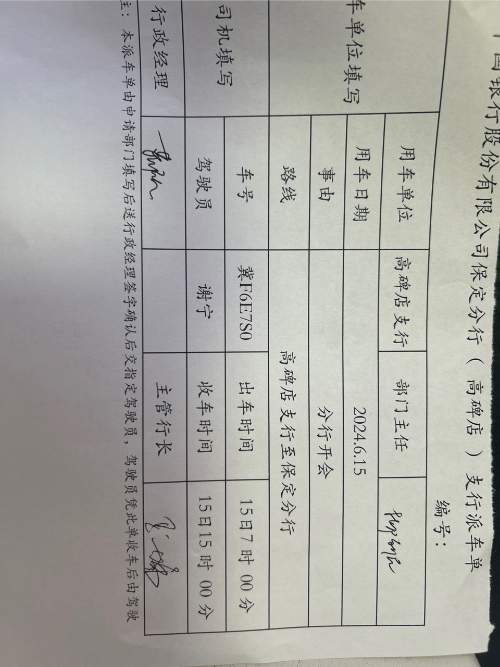 中国银行股份有限公司保定分行（高碑店）支行派车单
编号：
车单位填写 用车单位 高碑店支行 部门主任
用车日期 2024.6.15
事由 分行开会
路线 高碑店支行至保定分行
司机填写 车号 冀F6E7S0 出车时间 15日7时00分
驾驶员 谢宁 收车时间 15日15时00分
行政经理 主管行长
注：本派车单由申请部门填写后送行政经理签字确认后交指定驾驶员，驾驶员凭此单收车后由驾驶